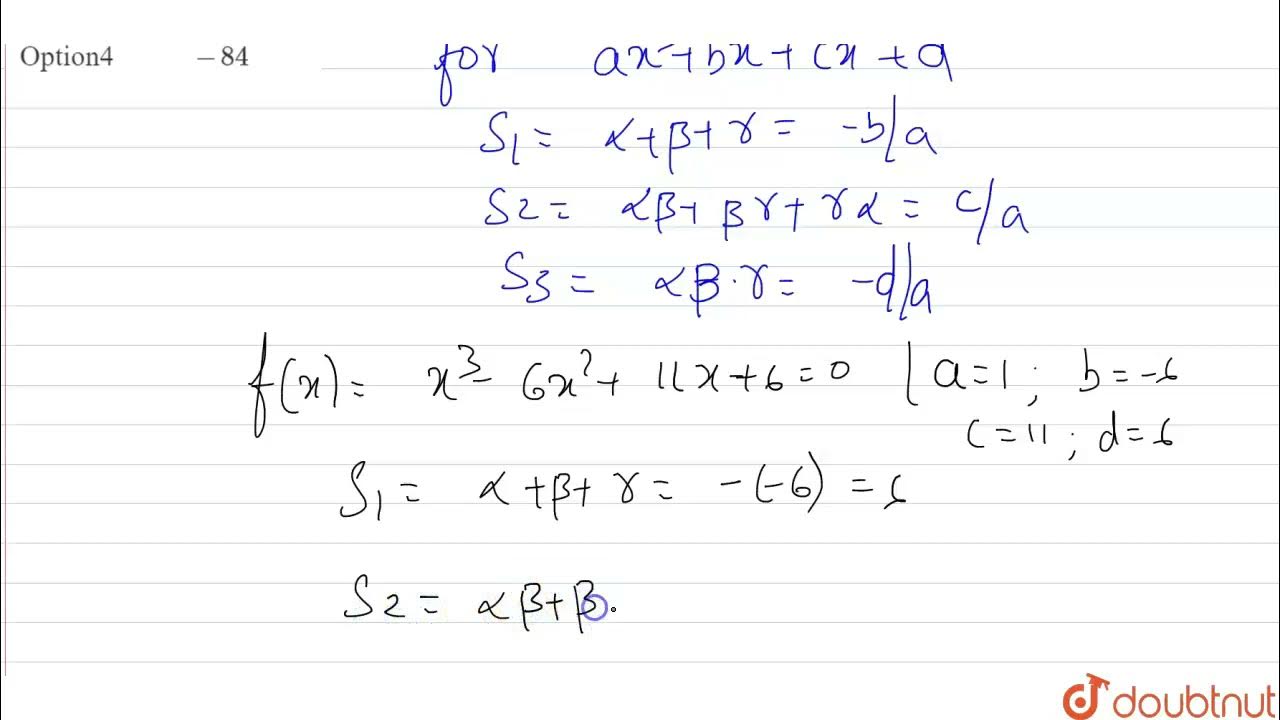 Option4 – 84
for ax + bx + cx + d
S1 = α + β + γ = -b/a
S2 = αβ + βγ + γα = c/a
S3 = αβ.γ = -d/a
f(x) = x³ - 6x² + 11x + 6 = 0 | a = 1 ; b = -6
c = 11 ; d = 6
S1 = α + β + γ = -(-6) = 6
S2 = αβ + β.
doubtnut